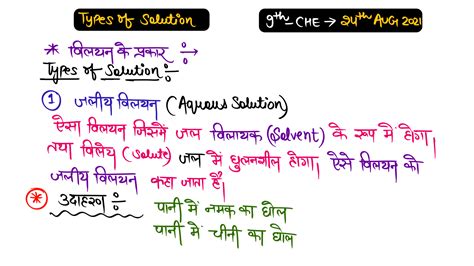 Types of Solution
9th - CHE → 24th AUG 2021
* विलयन के प्रकार ÷→
Types of Solution ÷
① जलीय विलयन (Aqueous Solution)
ऐसा विलयन जिसमें जल विलायक (Solvent) के रूप में होगा।
तथा विलेय (Solute) जल में घुलनशील होगा। ऐसे विलयन को
जलीय विलयन कहा जाता है।
* उदाहरण ÷
पानी में नमक का घोल
पानी में चीनी का घोल